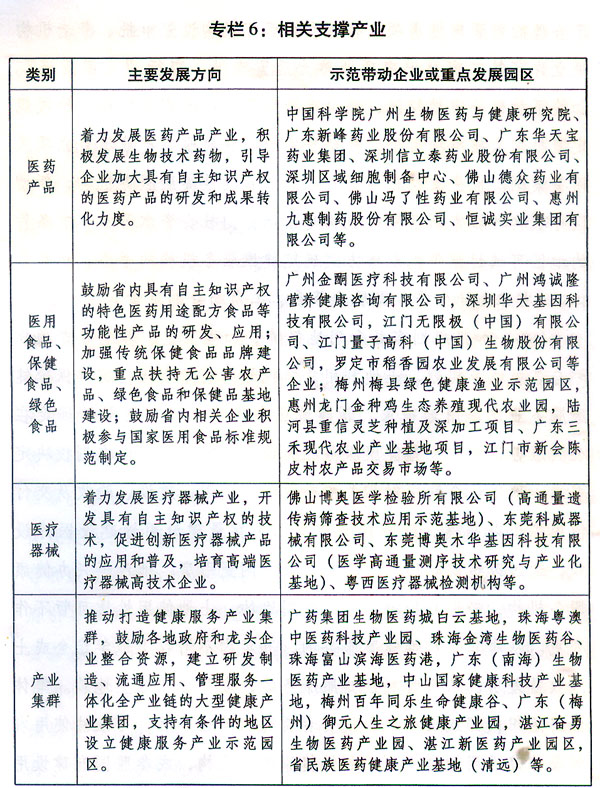 专栏6：相关支撑产业
类别
主要发展方向
示范带动企业或重点发展园区
医药
产品
着力发展医药产品产业，积
极发展生物技术药物，引导
企业加大具有自主知识产权
的医药产品的研发和成果转
化力度。
中国科学院广州生物医药与健康研究院、
广东新峰药业股份有限公司、广东华天宝
药业集团、深圳信立泰药业股份有限公司、
深圳区域细胞制备中心、佛山德众药业有
限公司、佛山冯了性药业有限公司、惠州
九惠制药股份有限公司、恒诚实业集团有
限公司等。
医用
食品、
保健
食品、
绿色
食品
鼓励省内具有自主知识产权
的特色医药用途配方食品等
功能性产品的研发、应用；
加强传统保健食品品牌建
设，重点扶持无公害农产
品、绿色食品和保健品基地
建设；鼓励省内相关企业积
极参与国家医用食品标准规
范制定。
广州金酮医疗科技有限公司、广州鸿诚隆
营养健康咨询有限公司，深圳华大基因科
技有限公司，江门无限极（中国）有限公
司、江门量子高科（中国）生物股份有限
公司，罗定市稻香园农业发展有限公司等
企业；梅州梅县绿色健康渔业示范园区，
惠州龙门金种鸡生态养殖现代农业园，陆
河县重信灵芝种植及深加工项目、广东三
禾现代农业产业基地项目，江门市新会陈
皮村农产品交易市场等。
医疗
器械
着力发展医疗器械产业，开
发具有自主知识产权的技
术，促进创新医疗器械产品
的应用和普及，培育高端医
疗器械高技术企业。
佛山博奥医学检验所有限公司（高通量遗
传病筛查技术应用示范基地）、东莞科威器
械有限公司、东莞博奥木华基因科技有限
公司（医学高通量测序技术研究与产业化
基地）、粤西医疗器械检测机构等。
产业
集群
推动打造健康服务产业集
群，鼓励各地政府和龙头企
业整合资源，建立研发制
造、流通应用、管理服务一
体化全产业链的大型健康产
业集团，支持有条件的地区
设立健康服务产业示范园
区。
广药集团生物医药城白云基地，珠海粤澳
中医药科技产业园、珠海金湾生物医药谷、
珠海富山滨海医药港，广东（南海）生物
医药产业基地，中山国家健康科技产业基
地，梅州百年同乐生命健康谷、广东（梅
州）御元人生之旅健康产业园，湛江奋勇
生物医药产业园、湛江新医药产业园区，
省民族医药健康产业基地（清远）等。